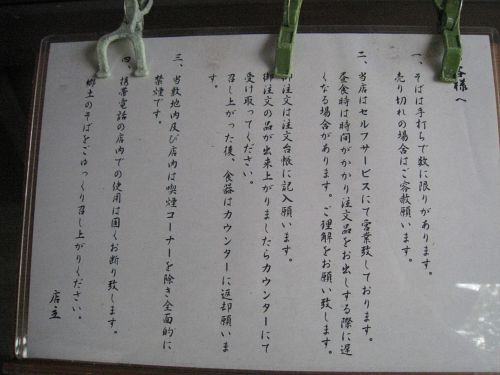 客様へ
一、そばは手打ちで数に限りがあります。
売り切れの場合はご容赦願います。
二、当店はセルフサービスにて営業致しております。
昼食時は時間がかかり注文品をお出しする際に遅
くなる場合があります。ご理解をお願い致します。
御注文は注文台帳に記入願います。
御注文の品が出来上がりましたらカウンターにて
受け取ってください。
召し上がった後、食器はカウンターに返却願いま
す。
三、当敷地内及び店内は喫煙コーナーを除き全面的に
禁煙です。
四、携帯電話の店内での使用は固くお断り致します。
郷土のそばをごゆっくり召し上がりください。
店主